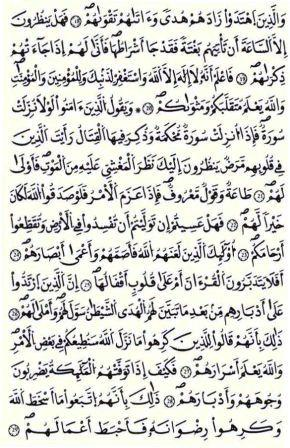 وَالَّذِينَ اهْتَدَوْا زَادَهُمْ هُدًى وَءَاتَىٰهُمْ تَقْوَىٰهُمْ فَهَلْ يَنظُرُونَ
إِلَّا السَّاعَةَ أَن تَأْتِيَهُم بَغْتَةً فَقَدْ جَا أَشْرَاطُهَا فَأَنَّىٰ لَهُمْ إِذَا جَاءَتْهُمْ
ذِكْرَىٰهُمْ فَاعْلَمْ أَنَّهُ لَا إِلَٰهَ إِلَّا اللَّهُ وَاسْتَغْفِرْ لِذَنبِكَ وَلِلْمُؤْمِنِينَ وَالْمُؤْمِنَٰتِ
وَاللَّهُ يَعْلَمُ مُتَقَلَّبَكُمْ وَمَثْوَىٰكُمْ وَيَقُولُ الَّذِينَ ءَامَنُوا لَوْلَا نُزِّلَتْ
سُورَةٌ فَإِذَا أُنزِلَتْ سُورَةٌ مُّحْكَمَةٌ وَذُكِرَ فِيهَا الْقِتَالُ رَأَيْتَ الَّذِينَ
فِي قُلُوبِهِم مَّرَضٌ يَنظُرُونَ إِلَيْكَ نَظَرَ الْمَغْشِيِّ عَلَيْهِ مِنَ الْمَوْتِ فَأَوْلَىٰ
لَهُمْ طَاعَةٌ وَقَوْلٌ مَّعْرُوفٌ فَإِذَا عَزَمَ الْأَمْرُ فَلَوْ صَدَقُوا اللَّهَ لَكَانَ
خَيْرًا لَّهُمْ فَهَلْ عَسِيتُمْ إِن تَوَلَّيْتُمْ أَن تُفْسِدُوا فِي الْأَرْضِ وَتُقَطِّعُوا
أَرْحَامَكُمْ أُولَٰئِكَ الَّذِينَ لَعَنَهُمُ اللَّهُ فَأَصَمَّهُمْ وَأَعْمَىٰ أَبْصَٰرَهُمْ
أَفَلَا يَتَدَبَّرُونَ الْقُرْءَانَ أَمْ عَلَىٰ قُلُوبٍ أَقْفَالُهَا إِنَّ الَّذِينَ ارْتَدُّوا
عَلَىٰ أَدْبَٰرِهِم مِّن بَعْدِ مَا تَبَيَّنَ لَهُمُ الْهُدَى الشَّيْطَٰنُ سَوَّلَ لَهُمْ وَأَمْلَىٰ لَهُمْ
ذَٰلِكَ بِأَنَّهُمْ قَالُوا لِلَّذِينَ كَرِهُوا مَا نَزَّلَ اللَّهُ سَنُطِيعُكُمْ فِي بَعْضِ الْأَمْرِ
وَاللَّهُ يَعْلَمُ أَسْرَارَهُمْ فَكَيْفَ إِذَا تَوَفَّتْهُمُ الْمَلَٰئِكَةُ يَضْرِبُونَ
وُجُوهَهُمْ وَأَدْبَٰرَهُمْ ذَٰلِكَ بِأَنَّهُمُ اتَّبَعُوا مَا أَسْخَطَ اللَّهَ
وَكَرِهُوا رِضْوَٰنَهُ فَأَحْبَطَ أَعْمَٰلَهُمْ